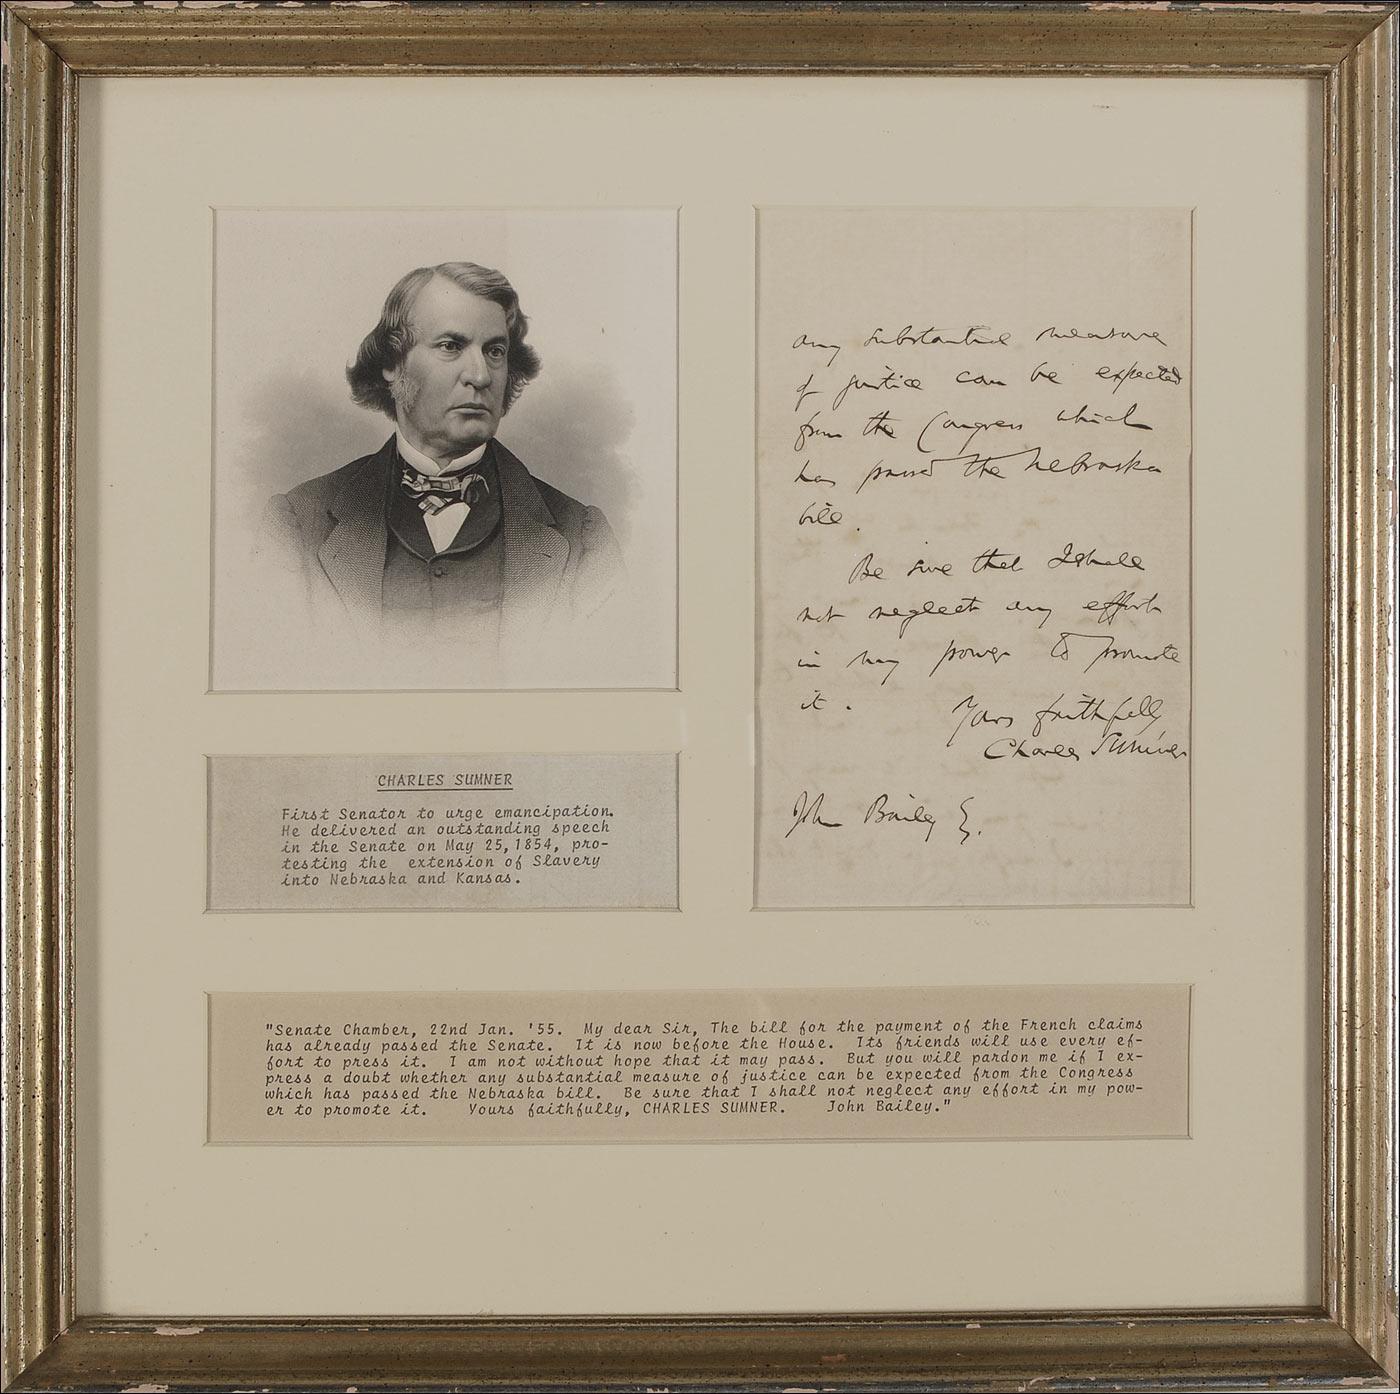 any substantial measure
of justice can be expected
from the Congress which
has passed the Nebraska
bill.
Be sure that I shall
not neglect any effort
in my power to promote
it.
Yours faithfully
Charles Sumner
John Bailey E.
CHARLES SUMNER
First Senator to urge emancipation.
He delivered an outstanding speech
in the Senate on May 25, 1854, pro-
testing the extension of Slavery
into Nebraska and Kansas.
"Senate Chamber, 22nd Jan. '55. My dear Sir, The bill for the payment of the French claims
has already passed the Senate. It is now before the House. Its friends will use every ef-
fort to press it. I am not without hope that it may pass. But you will pardon me if I ex-
press a doubt whether any substantial measure of justice can be expected from the Congress
which has passed the Nebraska bill. Be sure that I shall not neglect any effort in my pow-
er to promote it. Yours faithfully, CHARLES SUMNER. John Bailey."